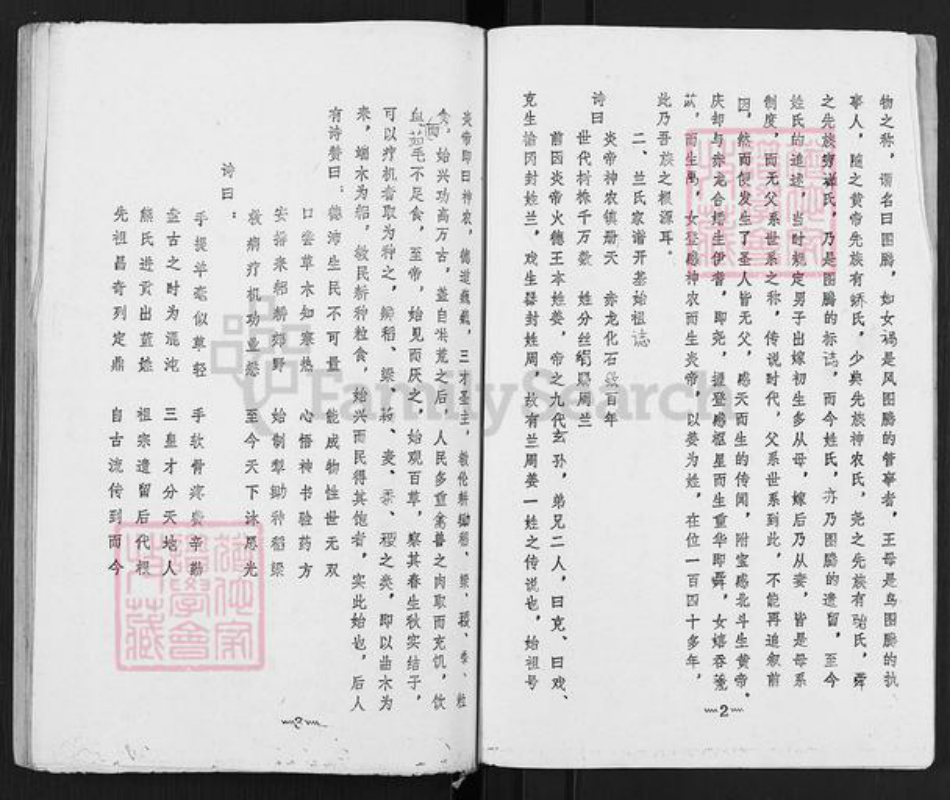 物之称，谓名曰图腾，如女祸是风图腾的管事者，王母是鸟图腾的执
事人，随之黄帝先族有矫氏，少典先族神农氏，尧之先族有 氏，舜
之先族穷蝉氏，乃是图腾的标誌，而今姓氏，亦乃图腾的遗留，至今
姓氏的追述，当时规定男子出嫁初生多从母，嫁后乃从妻，皆是母系
制度，而无父系世系之称，传说时代，父系世系到此，不能再追叙前
因，然而便发生了圣人皆无父，感天而生的传闻，附宝感北斗生黄帝。
庆却与赤龙合婚生伊耆，即尧，握登感枢星而生重华即舜，女嬉吞
苡，而生禹，女登感神农而生炎帝，以姜为姓，在位一百四十多年，
此乃吾族之根源耳。
二、兰氏家谱开基始祖誌
诗曰
炎帝神农镇册天 赤龙化石 百年
世代树株千万数 姓分丝绢赐周兰
前因炎帝火德王本姓姜，帝之九代玄孙，弟兄二人，曰克、曰戏、
克生恰冈封姓兰，戏生 封姓周，故有兰周姜一姓之传说也，始祖号
2
炎帝即曰神农，德道巍巍，三才圣主，教伦耕锄稻、梁、稷、黍、社
食，始兴功高万古，盖自洪荒之后，人民多重禽兽之肉取而充饥，饮
血茹毛不足食，至帝，始见而厌之，始观百草，察其春生秋实结子，
可以疗机者取为种之， 稻、梁、菽、麦、黍、稷之类，即以曲木为
来，端木为耜，教民耕种粒食，始兴而民得其饱者，实此始也，后人
有诗赞曰：德沛生民不可量 能成物性世无双
口尝草木知寒热 心悟神书验药方
安揩来耜耕郊野 始制犁锄种稻梁
救病疗机功业懋 至今天下沐恩光
诗曰：
手提羊毫似草轻 手软骨疼费辛勤
盘古之时为混沌 三皇才分天地人
熊氏进贡出蓝姓 祖宗遗留后代根
先祖昌奇列定鼎 自古流传到而今
3
FamilySearch